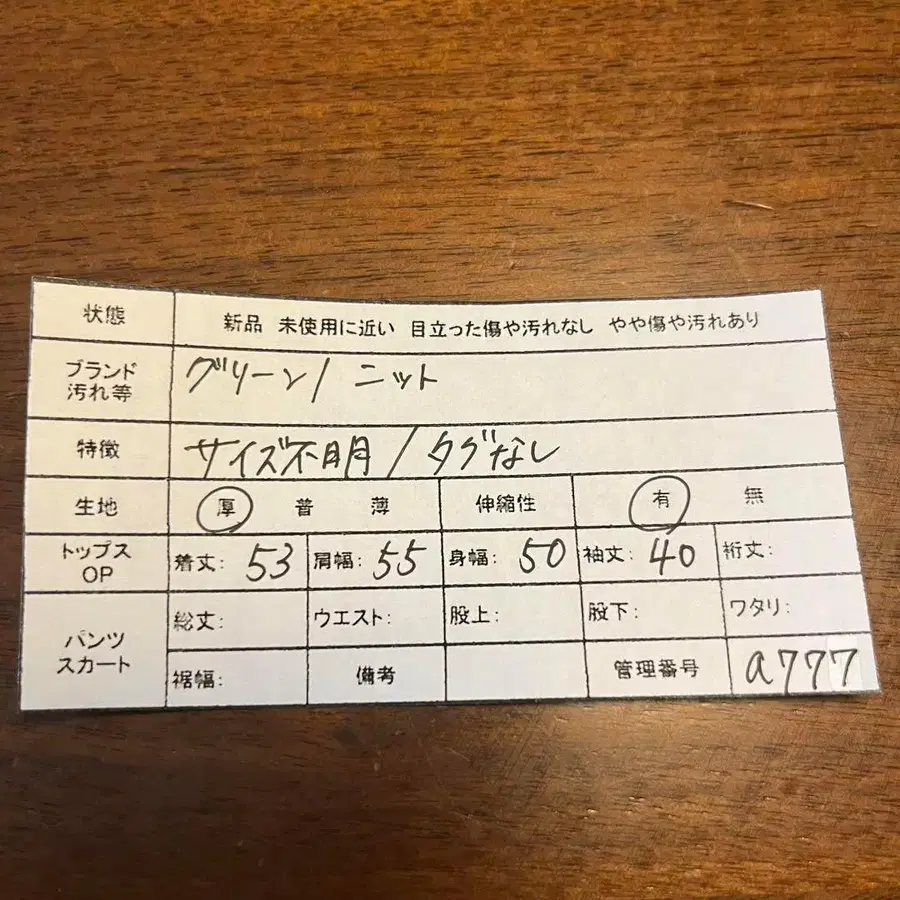 状態 新品 未使用に近い 目立った傷や汚れなし やや傷や汚れあり
ブランド 汚れ等 グリーン/ ニット
特徴 サイズ不明/タグなし
生地 厚 普 薄 伸縮性 有 無
トップス OP 着丈: 53 肩幅: 55 身幅: 50 袖丈: 40 裄丈:
パンツ スカート 総丈: ウエスト: 股上: 股下: ワタリ:
裾幅: 備考 管理番号 a777